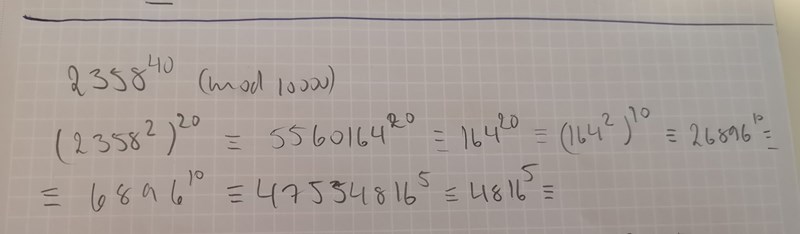 2358^40 (mod 10000)
(2358^2)^20 ≡ 5560164^20 ≡ 164^20 ≡ (164^2)^10 ≡ 26896^10 ≡
≡ 6896^10 ≡ 47554816^5 ≡ 4816^5 ≡